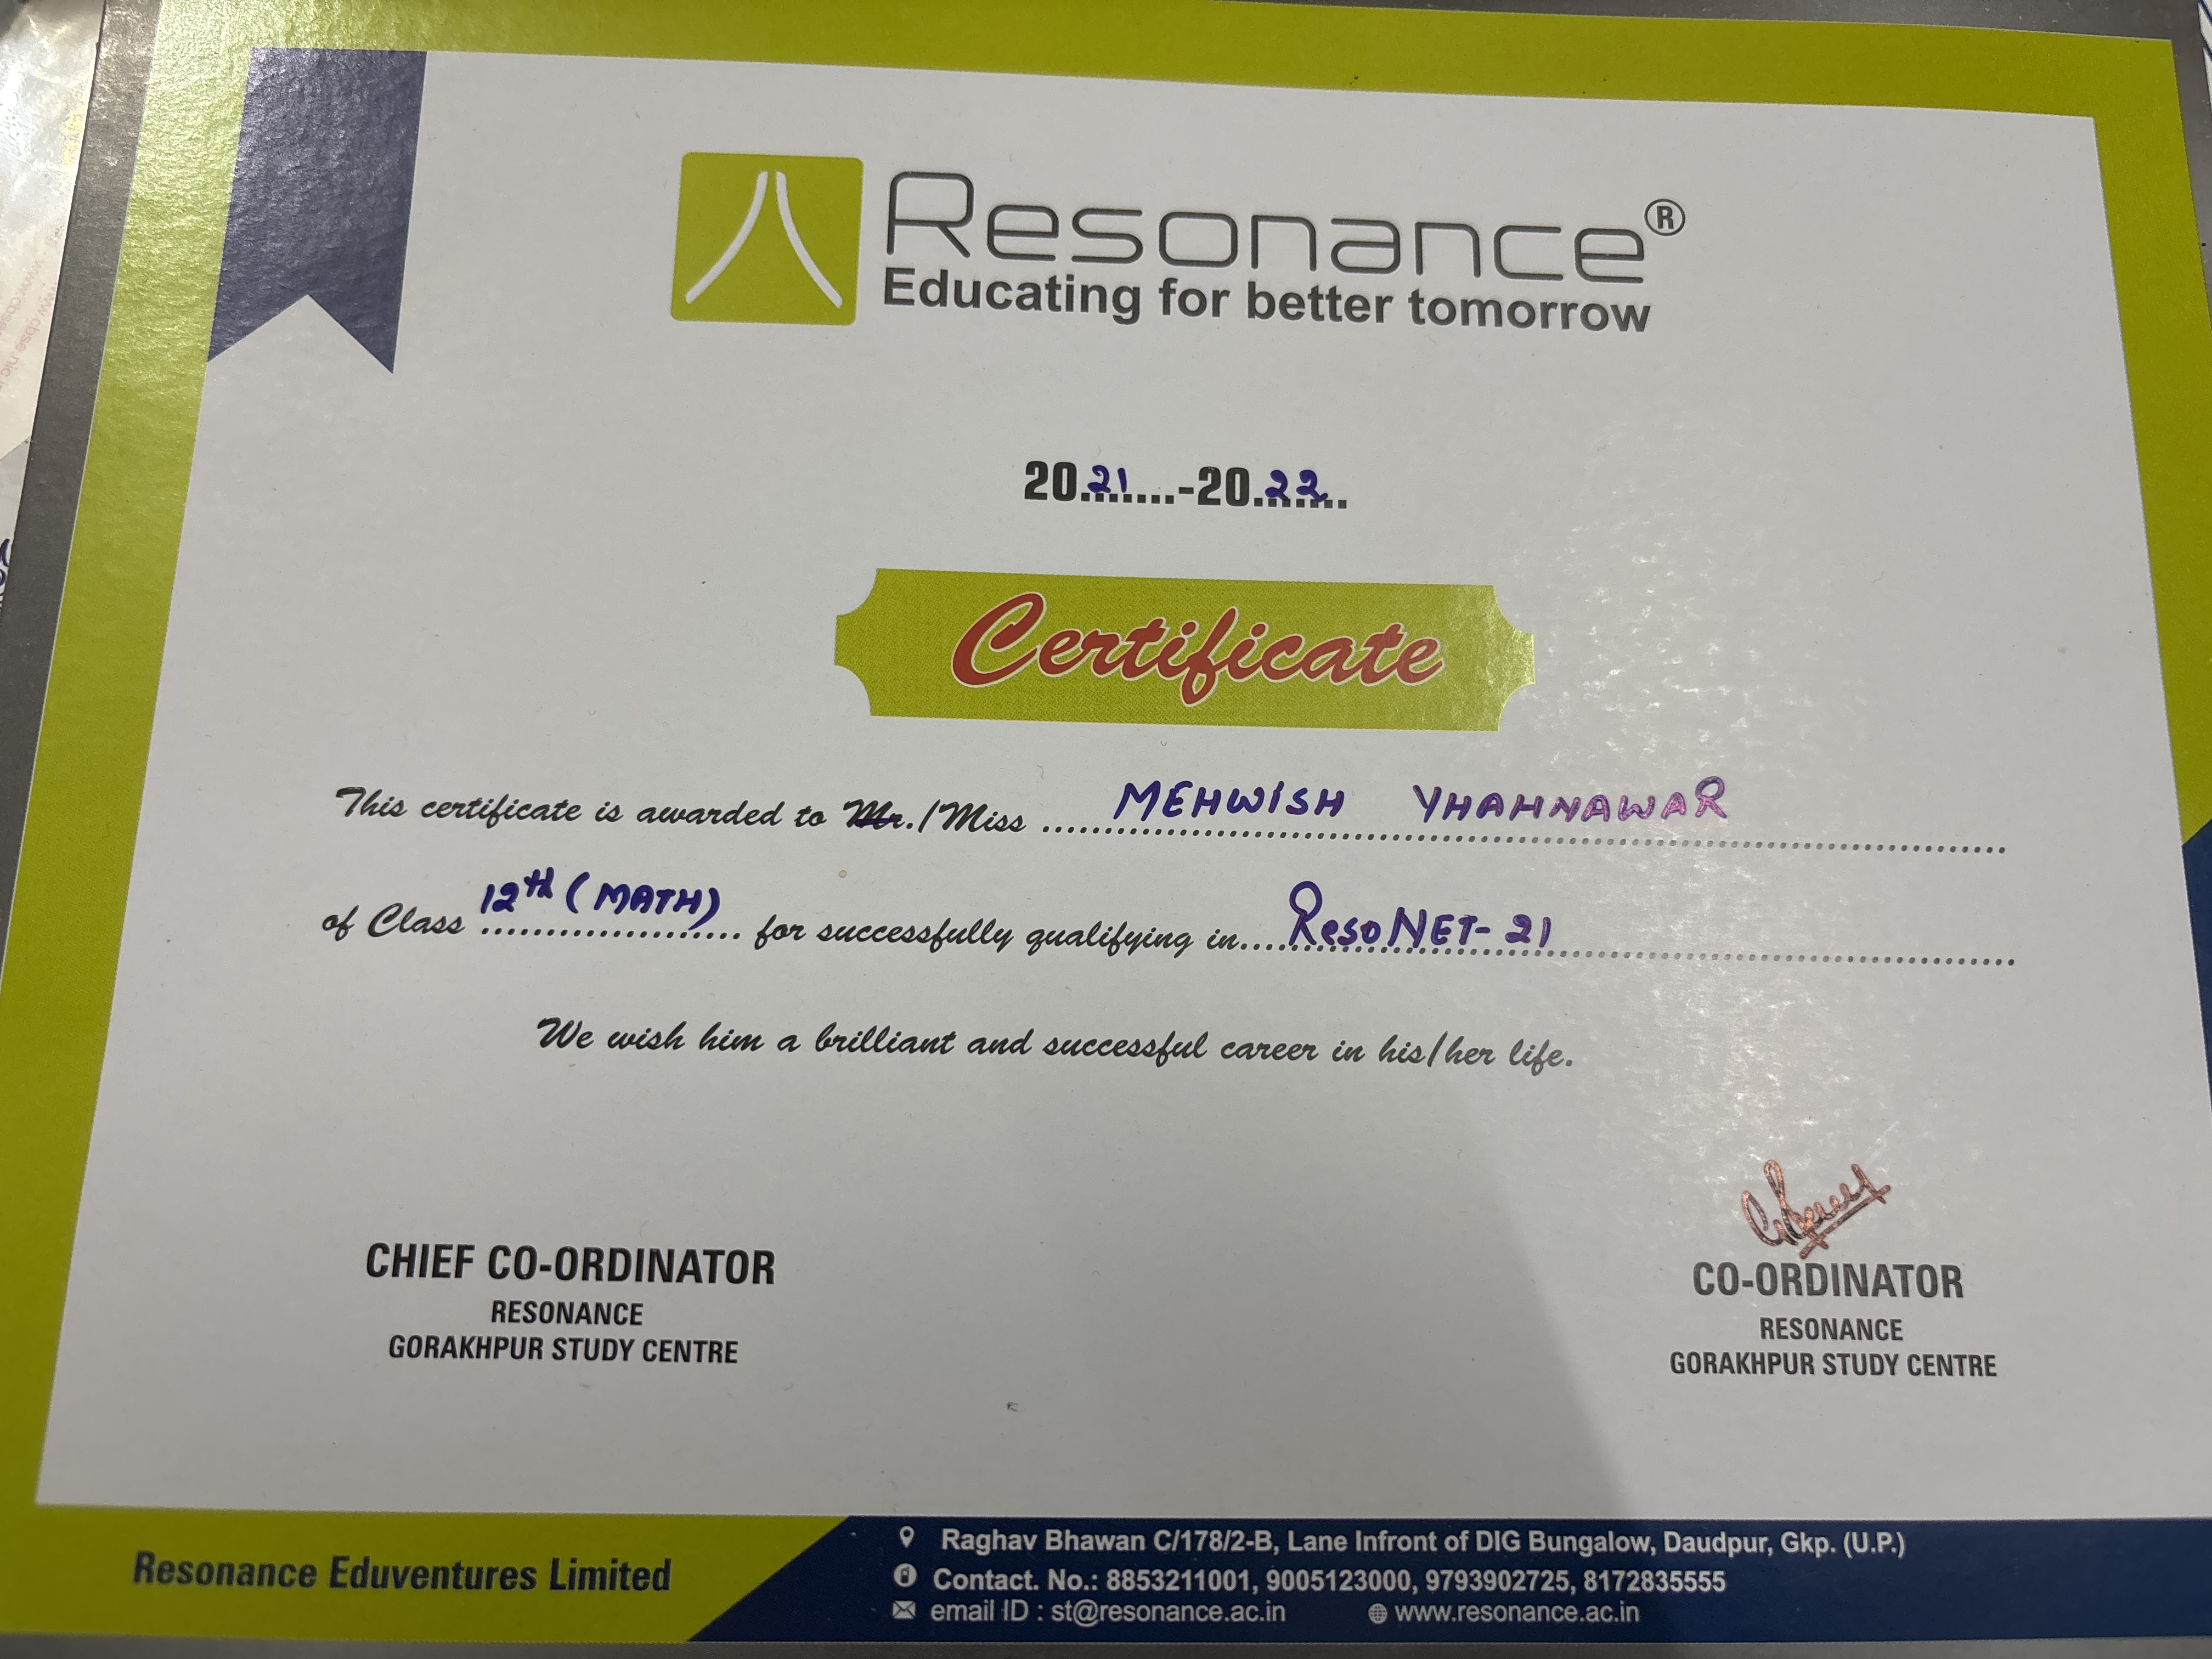 Resonance®
Educating for better tomorrow
2021....-2022....
Certificate
This certificate is awarded to Mr./Miss ........ MEHWISH YHAHNAWAR ........
of Class ........ 12th (MATH) ........ for successfully qualifying in........ ResoNET-21 ........
We wish him a brilliant and successful career in his/her life.
CHIEF CO-ORDINATOR
RESONANCE
GORAKHPUR STUDY CENTRE
CO-ORDINATOR
RESONANCE
GORAKHPUR STUDY CENTRE
Resonance Eduventures Limited
Raghav Bhawan C/178/2-B, Lane Infront of DIG Bungalow, Daudpur, Gkp. (U.P.)
Contact. No.: 8853211001, 9005123000, 9793902725, 8172835555
email ID : st@resonance.ac.in www.resonance.ac.in